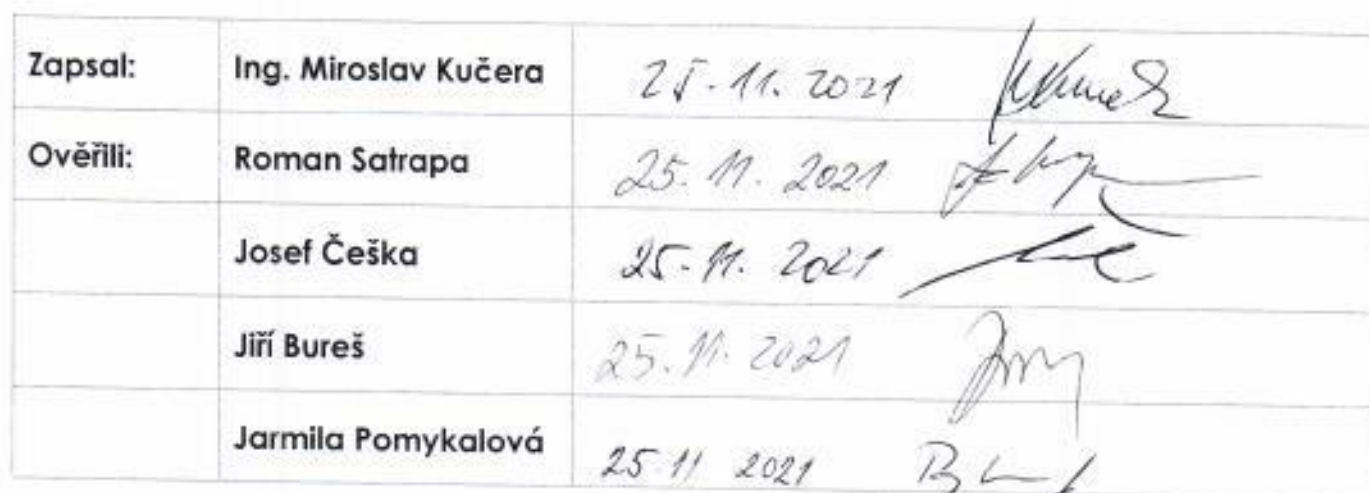 Zapsal: Ing. Miroslav Kučera 25.11.2021
Ověřili: Roman Satrapa 25.11.2021
Josef Češka 25.11.2021
Jiří Bureš 25.11.2021
Jarmila Pomykalová 25 11 2021